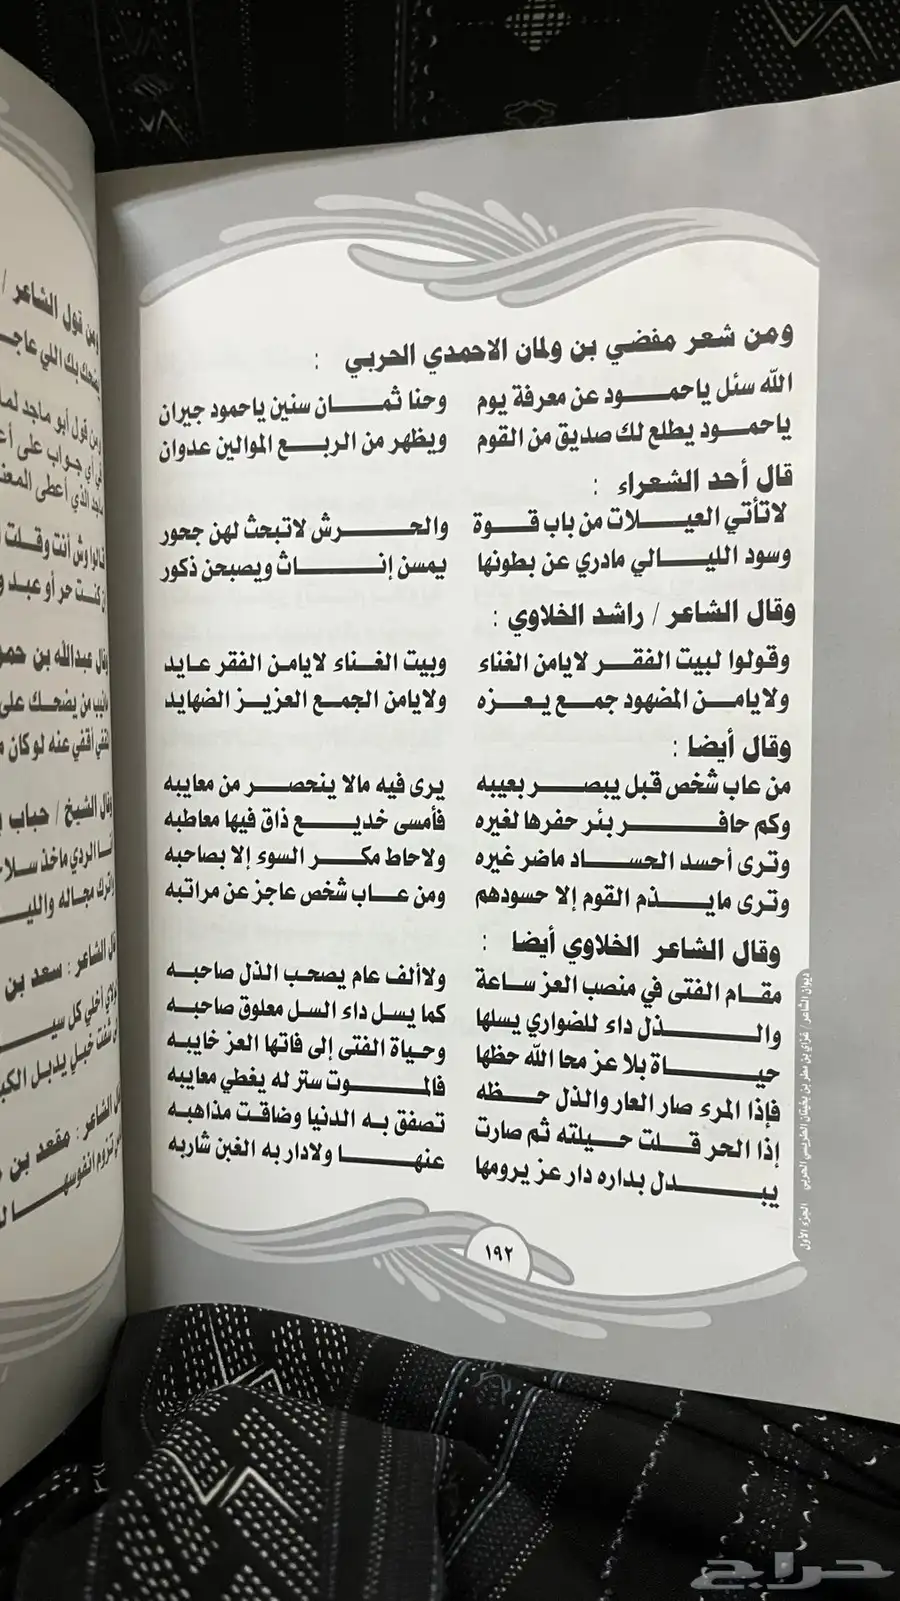 ومن شعر مفضي بن ولمان الاحمدي الحربي :
الله سئل ياحمود عن معرفة يوم وحنا ثمان سنين ياحمود جيران
ياحمود يطلع لك صديق من القوم ويظهر من الربع الموالين عدوان
قال أحد الشعراء :
لاتأتي العيلات من باب قوة والحرش لاتبحث لهن جحور
وسود الليالي مادري عن بطونها يمسن إناث ويصبحن ذكور
وقال الشاعر / راشد الخلاوي :
وقولوا لبيت الفقر لايامن الغناء وبيت الغناء لايامن الفقر عايد
ولايامن المضهود جمع يعزه ولايامن الجمع العزيز الضهايد
وقال أيضا :
من عاب شخص قبل يبصر بعيبه يرى فيه مالا ينحصر من معايبه
وكم حافر بئر حفرها لغيره فأمسى خديع ذاق فيها معاطبه
وترى أحسد الحساد ماضر غيره ولاحاط مكر السوء إلا بصاحبه
وترى مايذم القوم إلا حسودهم ومن عاب شخص عاجز عن مراتبه
وقال الشاعر الخلاوي أيضا :
مقام الفتى في منصب العز ساعة ولاألف عام يصحب الذل صاحبه
والذل داء للضواري يسلها كما يسل داء السل معلوق صاحبه
حياة بلا عز محا الله حظها وحياة الفتى إلى فاتها العز خايبه
فإذا المرء صار العار والذل حظه فالموت ستر له يغطي معايبه
إذا الحر قلت حيلته ثم صارت تصفق به الدنيا وضاقت مذاهبه
يبدل بداره دار عز يرومها عنها ولادار به الغبن شاربه
١٩٢
ديوان الشاعر / غزاي بن مطر بن بخيتان الطريسي الحربي الجزء الأول
ومن قول الشاعر /
بك اللي
ومن قول أبو ماجد
أي جواب على
ماجد الذي أعطى
قالوا وش أنت وقلت
كنت حر أو عبد
وقال عبدالله بن
من يضحك على
أقفي عنه لو كان
وقال الشيخ / حباب
الردي ماخذ
واترك مجاله
الشاعر : سعد بن
أخلي كل
خبل يدبل
الشاعر : مقعد بن
حراج